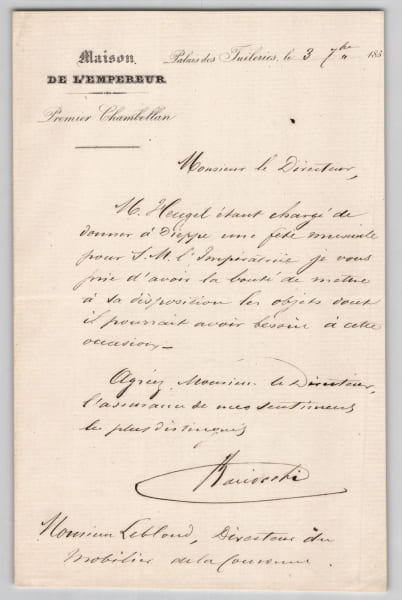 Maison
DE L'EMPEREUR
Palais des Tuileries, le 3 7bre 185
Premier Chambellan
Monsieur le Directeur,
M. Heugel étant chargé de
donner à Dieppe une fête musicale
pour S. M. l'Impératrice je vous
prie d'avoir la bonté de mettre
à sa disposition les objets dont
il pourrait avoir besoin à cette
occasion.
Agréez Monsieur le Directeur,
l'assurance de mes sentiments
les plus distingués
Monsieur Leblond, Directeur du
Mobilier de la Couronne.